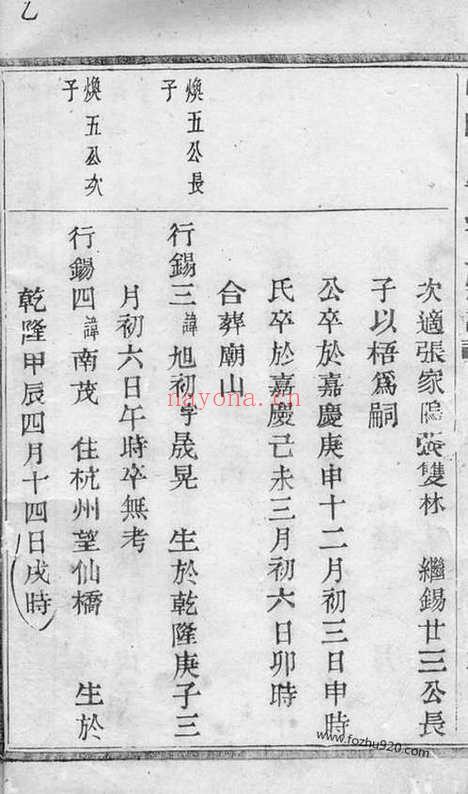 次適張家隝張雙林 繼錫廿三公長
子以梧爲嗣
公卒於嘉慶庚申十二月初三日申時
氏卒於嘉慶己未三月初六日卯時
合葬廟山
煥五公長
子
行錫三諱旭初字晟晃 生於乾隆庚子三
月初六日午時卒無考
煥五公次
子
行錫四諱南茂 住杭州望仙橋 生於
乾隆甲辰四月十四日戌時
nayona.cn
www.fozhu920.com